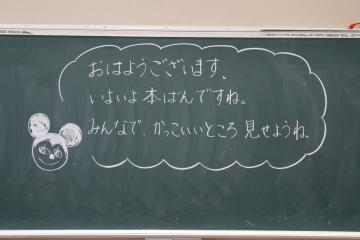 おはようございます、
いよいよ本ばんですね。
みんなで、かっこいいところ 見せようね。